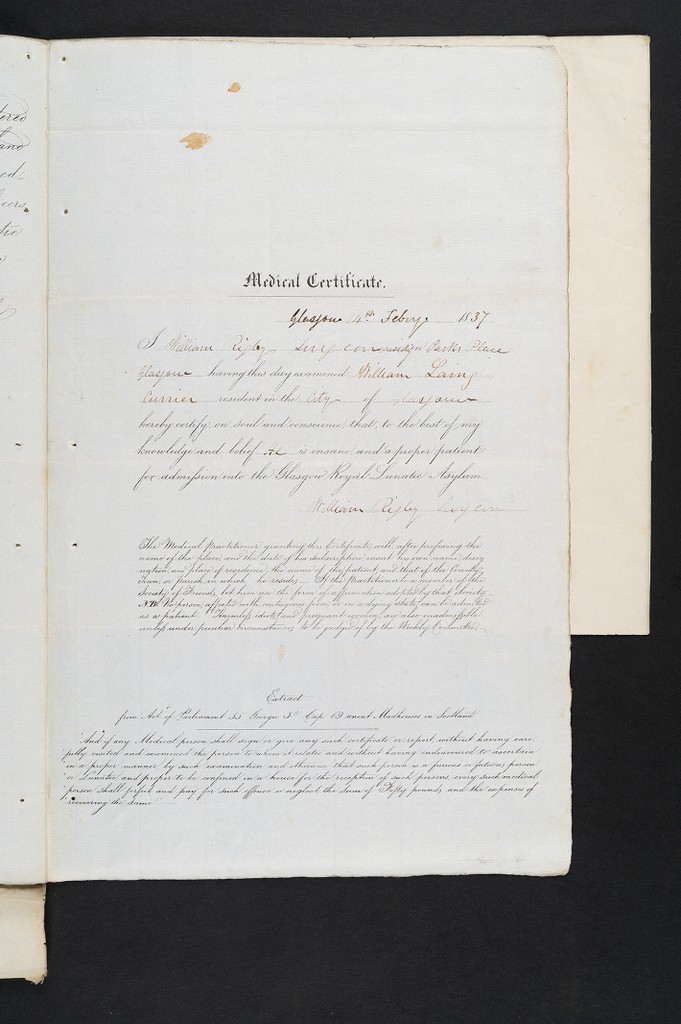 ered
and
ed-
cers
tic
Medical Certificate.
Glasgow 4th Feby 1837
I William Rigby Surgeon residing in Parks Place
Glasgow having this day examined William Laing
Currier resident in the City of Glasgow
hereby certify, on soul and conscience, that, to the best of my
knowledge and belief He is insane, and a proper patient
for admission into the Glasgow Royal Lunatic Asylum
William Rigby Surgeon
The Medical Practitioner granting this Certificate, will, after prefixing the
name of the place, and the date of his subscription, insert his own name, desig-
nation, and place of residence, the name of the patient, and that of the County,
Town, or Parish in which he resides. If the Practitioner be a member of the
Society of Friends, let him use the form of affirmation adopted by that Society.
N.B. No person, affected with contagious fever, or in a dying state, can be admitted
as a patient. Harmless idiots, and pregnant women, are also inadmissible,
unless under peculiar circumstances, to be judged of by the Weekly Committee.
Extract
from Act of Parliament 55 George 3d Cap 69 anent Madhouses in Scotland
"And if any Medical person shall sign or give any such certificate or report without having care
"fully visited and examined the person to whom it relates and without having endeavoured to ascertain
"in a proper manner by such examination and otherwise that such person is a furious or fatuous person
"or Lunatic, and proper to be confined in a house for the reception of such persons every such medical
"person shall forfeit and pay for such offence or neglect the Sum of Fifty pounds and the expenses of
"recovering the same"